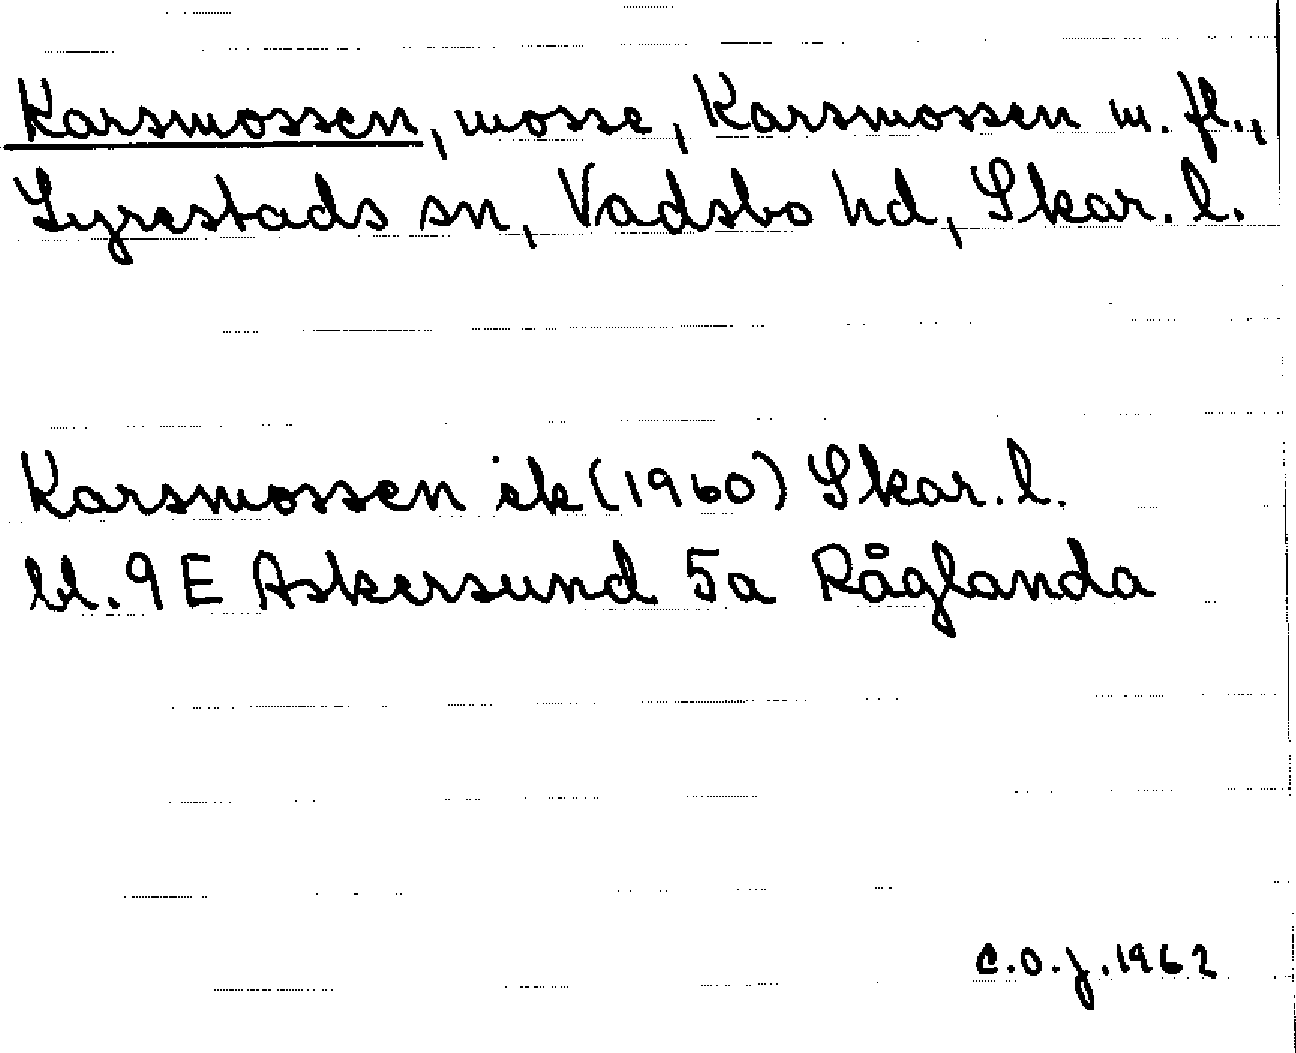 Karsmossen, mosse, Karsmossen m. fl.,
Lyrestads sn, Vadsbo hd, Skar. l.
Karsmossen ek (1960) Skar. l.
bl. 9 E Askersund 5a Råglanda
C.O.J. 1962